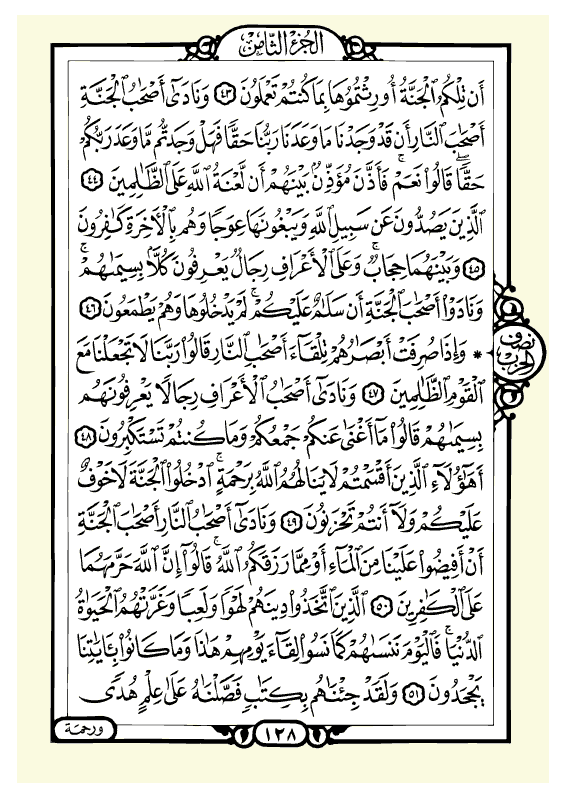 الجزء الثامن
أَن تِلْكُمُ ٱلْجَنَّةُ أُورِثْتُمُوهَا بِمَا كُنتُمْ تَعْمَلُونَ ٤٣ وَنَادَىٰٓ أَصْحَٰبُ ٱلْجَنَّةِ
أَصْحَٰبَ ٱلنَّارِ أَن قَدْ وَجَدْنَا مَا وَعَدَنَا رَبُّنَا حَقًّا فَهَلْ وَجَدتُّم مَّا وَعَدَ رَبُّكُمْ
حَقًّا ۖ قَالُوا۟ نَعَمْ ۚ فَأَذَّنَ مُؤَذِّنٌۢ بَيْنَهُمْ أَن لَّعْنَةُ ٱللَّهِ عَلَى ٱلظَّٰلِمِينَ ٤٤
ٱلَّذِينَ يَصُدُّونَ عَن سَبِيلِ ٱللَّهِ وَيَبْغُونَهَا عِوَجًا وَهُم بِٱلْءَاخِرَةِ كَٰفِرُونَ
٤٥ وَبَيْنَهُمَا حِجَابٌ ۚ وَعَلَى ٱلْأَعْرَافِ رِجَالٌ يَعْرِفُونَ كُلًّۢا بِسِيمَىٰهُمْ ۚ
وَنَادَوْا۟ أَصْحَٰبَ ٱلْجَنَّةِ أَن سَلَٰمٌ عَلَيْكُمْ ۚ لَمْ يَدْخُلُوهَا وَهُمْ يَطْمَعُونَ ٤٦
* وَإِذَا صُرِفَتْ أَبْصَٰرُهُمْ تِلْقَآءَ أَصْحَٰبِ ٱلنَّارِ قَالُوا۟ رَبَّنَا لَا تَجْعَلْنَا مَعَ
نصف الحزب
ٱلْقَوْمِ ٱلظَّٰلِمِينَ ٤٧ وَنَادَىٰٓ أَصْحَٰبُ ٱلْأَعْرَافِ رِجَالًا يَعْرِفُونَهُم
بِسِيمَىٰهُمْ قَالُوا۟ مَآ أَغْنَىٰ عَنكُمْ جَمْعُكُمْ وَمَا كُنتُمْ تَسْتَكْبِرُونَ ٤٨
أَهَٰٓؤُلَآءِ ٱلَّذِينَ أَقْسَمْتُمْ لَا يَنَالُهُمُ ٱللَّهُ بِرَحْمَةٍ ۚ ٱدْخُلُوا۟ ٱلْجَنَّةَ لَا خَوْفٌ
عَلَيْكُمْ وَلَآ أَنتُمْ تَحْزَنُونَ ٤٩ وَنَادَىٰٓ أَصْحَٰبُ ٱلنَّارِ أَصْحَٰبَ ٱلْجَنَّةِ
أَنْ أَفِيضُوا۟ عَلَيْنَا مِنَ ٱلْمَآءِ أَوْ مِمَّا رَزَقَكُمُ ٱللَّهُ ۚ قَالُوٓا۟ إِنَّ ٱللَّهَ حَرَّمَهُمَا
عَلَى ٱلْكَٰفِرِينَ ٥٠ ٱلَّذِينَ ٱتَّخَذُوا۟ دِينَهُمْ لَهْوًا وَلَعِبًا وَغَرَّتْهُمُ ٱلْحَيَوٰةُ
ٱلدُّنْيَا ۚ فَٱلْيَوْمَ نَنسَىٰهُمْ كَمَا نَسُوا۟ لِقَآءَ يَوْمِهِمْ هَٰذَا وَمَا كَانُوا۟ بِـَٔايَٰتِنَا
يَجْحَدُونَ ٥١ وَلَقَدْ جِئْنَٰهُم بِكِتَٰبٍ فَصَّلْنَٰهُ عَلَىٰ عِلْمٍ هُدًى
ورحمة
١٢٨